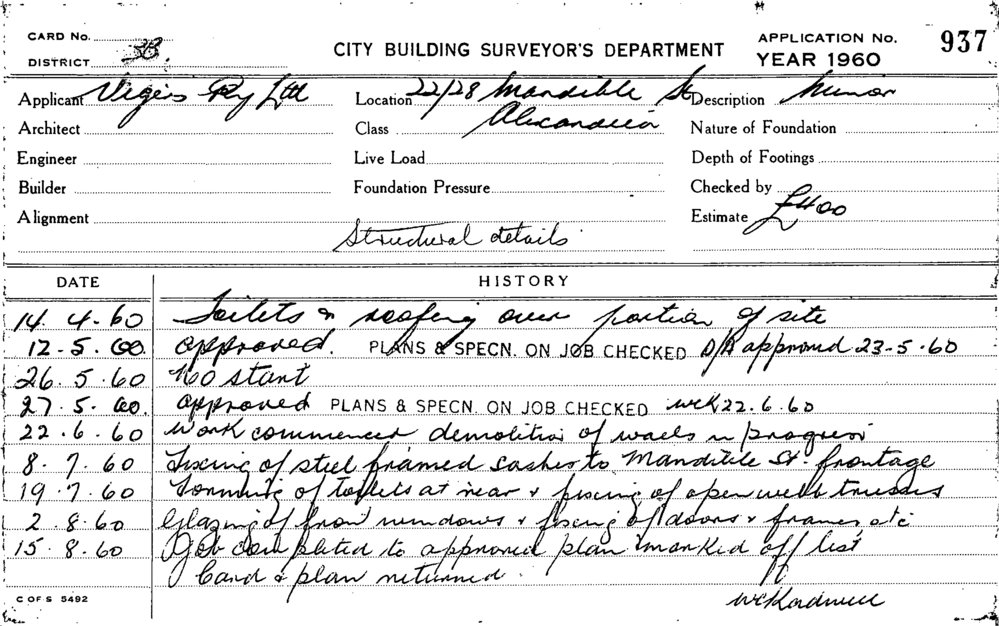 CARD No.
DISTRICT 3B.
CITY BUILDING SURVEYOR'S DEPARTMENT
APPLICATION No. 937
YEAR 1960
Applicant Vigers Pty Ltd Location 22/28 Mandible St Description Minor
Architect Class Alexandria Nature of Foundation
Engineer Live Load Depth of Footings
Builder Foundation Pressure Checked by
Alignment Estimate £400
Structural details
DATE HISTORY
14. 4. 60 Toilets & roofing over portion of site
12. 5. 60. approved. PLANS & SPECN. ON JOB CHECKED D/A approved 23-5-60
26. 5. 60 No start
27. 5. 60. approved PLANS & SPECN. ON JOB CHECKED WCK 22.6.60
22. 6. 60 Work commenced demolition of walls in progress
8. 7. 60 Fixing of steel framed sashes to Mandible St. frontage
19. 7. 60 Forming of toilets at rear & fixing of open web trusses
2. 8. 60 Glazing of front windows & fixing of doors & frames etc
15. 8. 60 Job completed to approved plan marked off list
Card & plan returned.
C OF S 5492